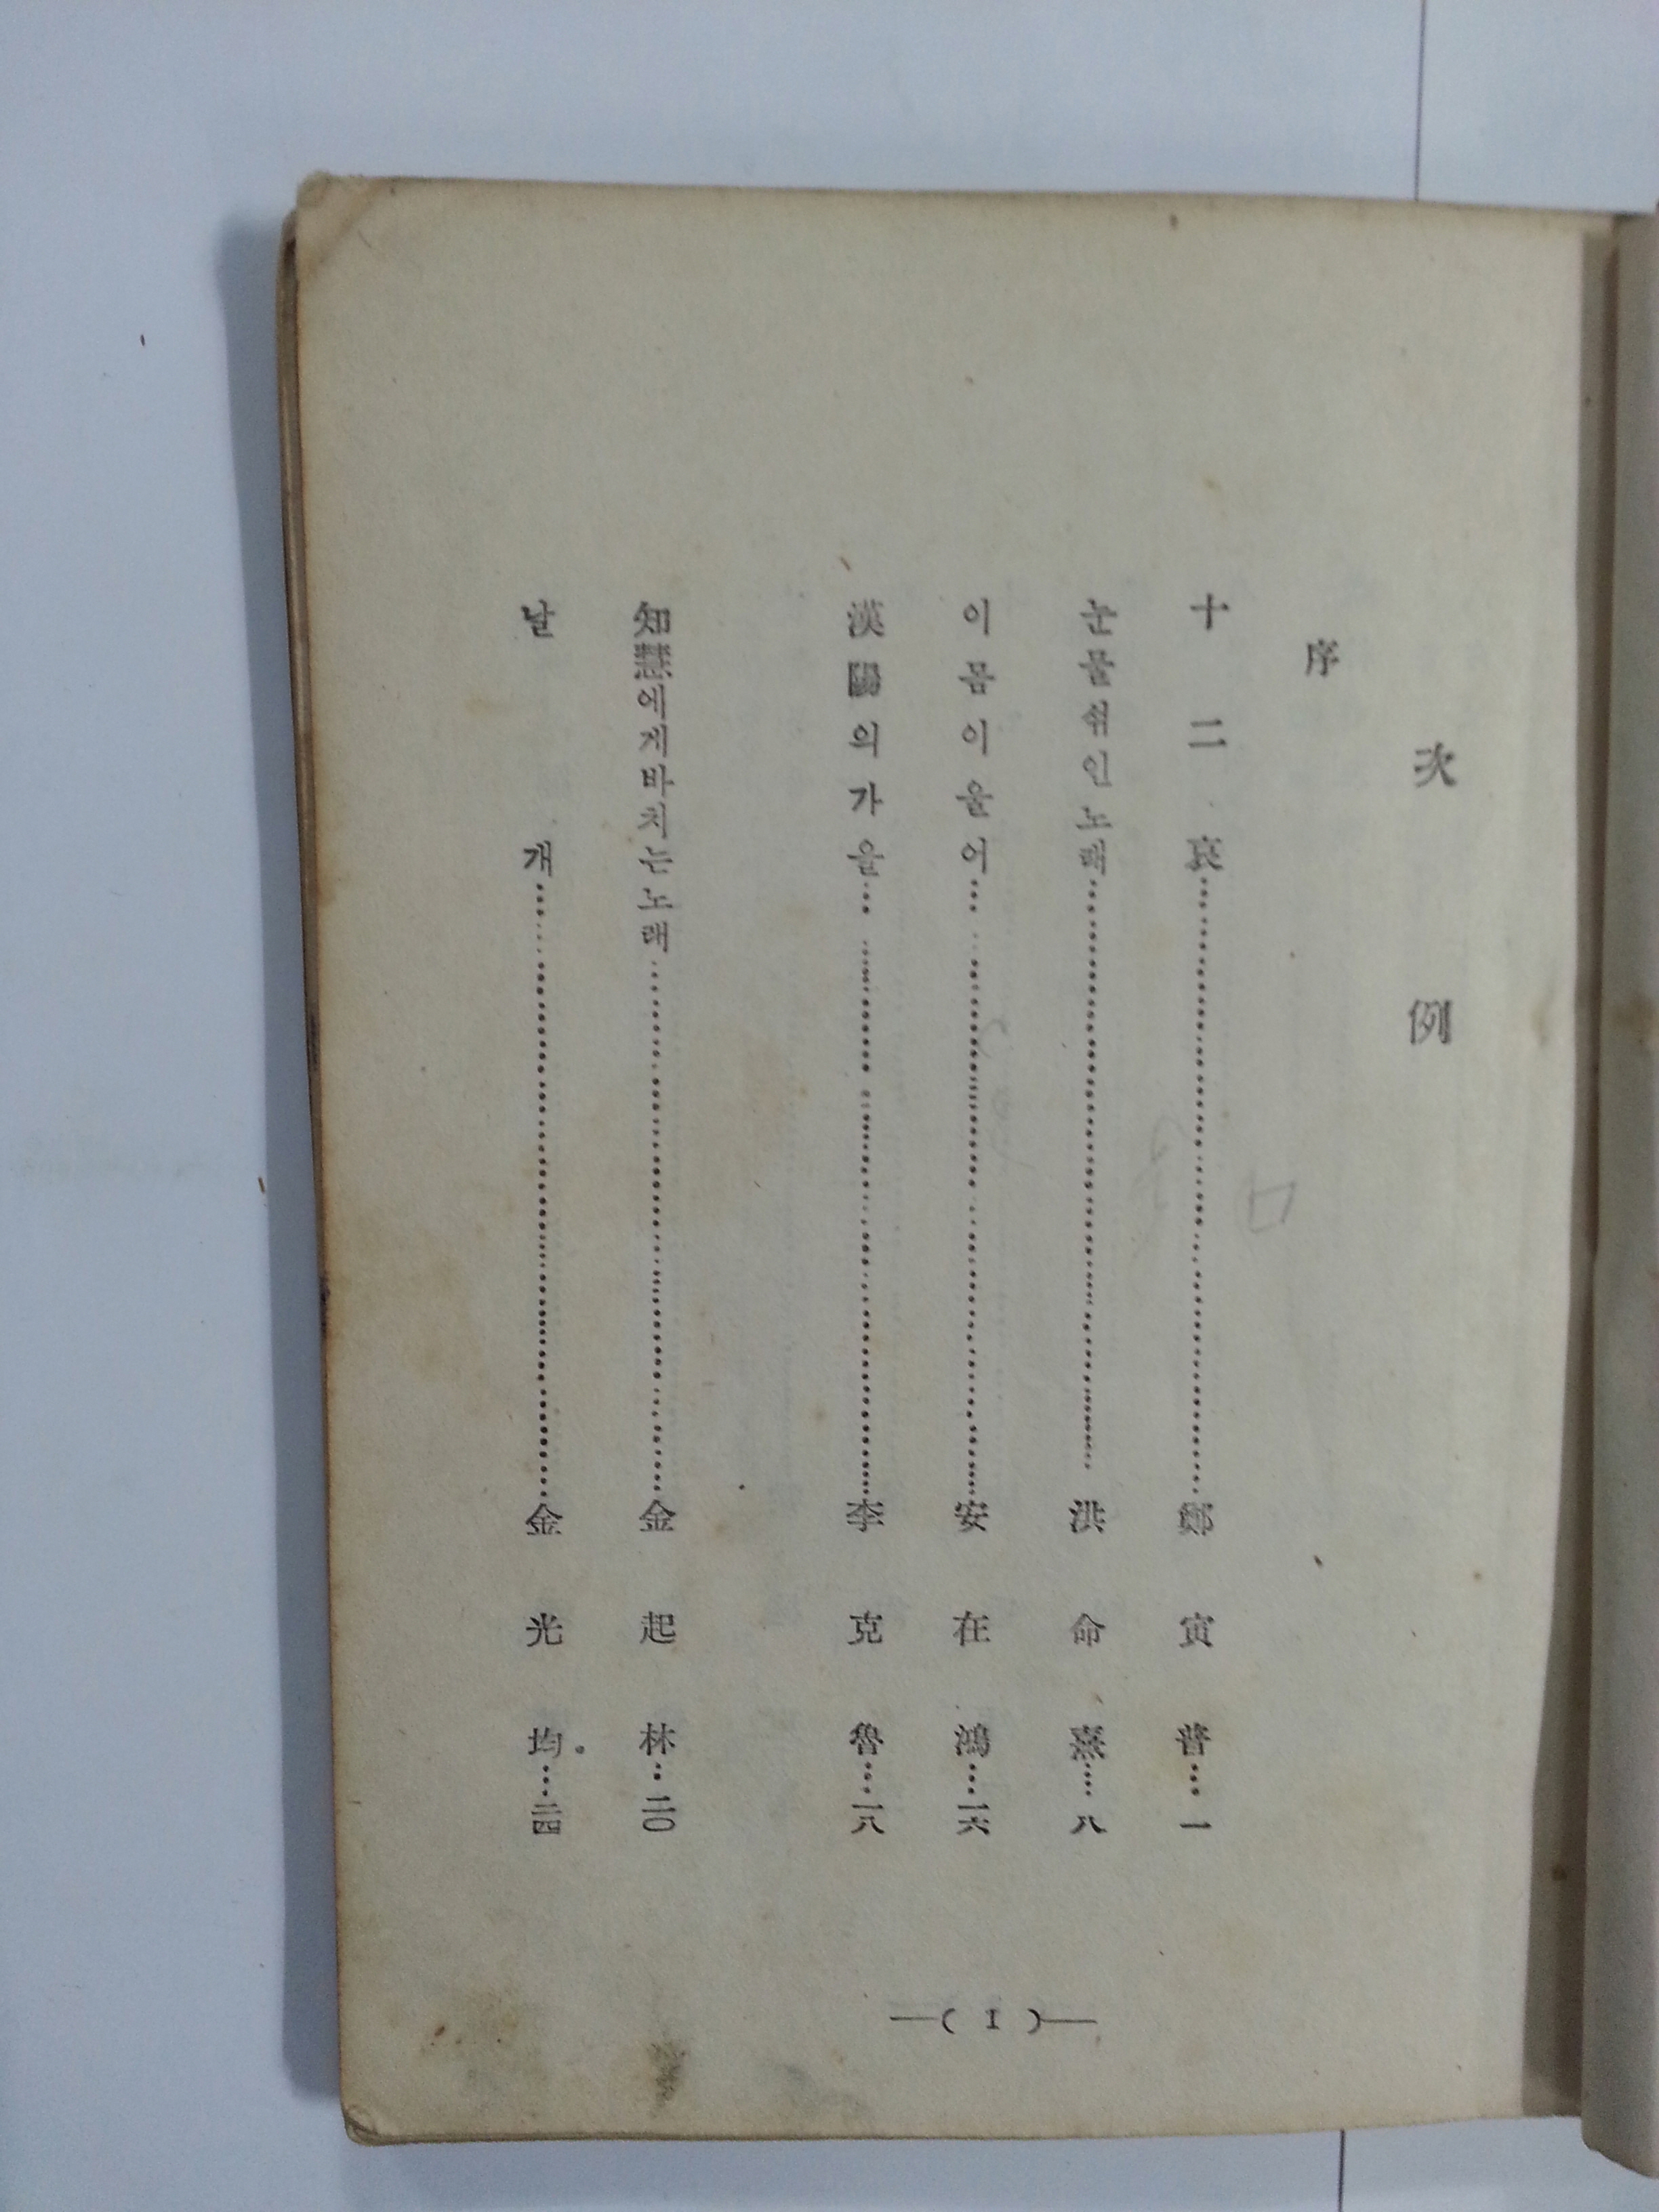 次例
序
十二哀……鄭寅普…一
눈물쉬인노래……洪命憙…八
이몸이울어……安在鴻…一六
漢陽의가을……李克魯…一八
知慧에게바치는노래……金起林…二〇
날개……金光均…二四
—( I )—